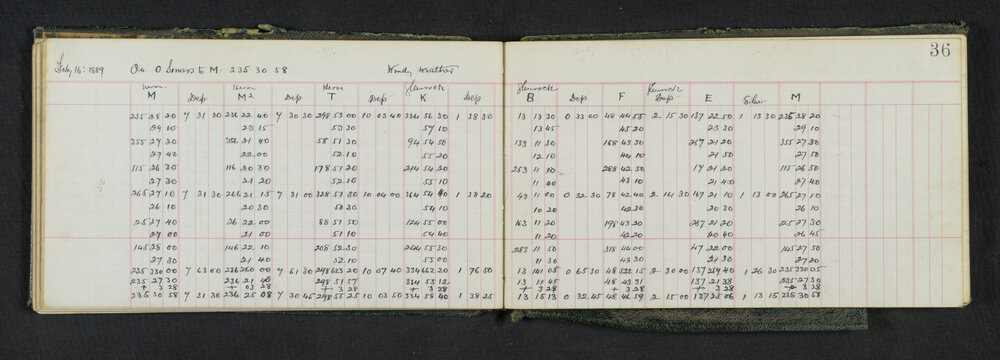 36
Feby 16th 1889 On O Somers to M 235 30 58 Windy Weather
M Dep M2 Dep T Dep K Dep B Dep F Dep E Elev M
235 28 20 7 31 30 236 22 40 7 30 30 298 53 00 10 03 40 334 56 30 1 38 30 13 13 30 0 33 00 48 44 55 2 15 30 137 22 50 1 13 30 235 28 20
29 10 23 15 53 30 57 10 13 45 45 20 23 30 29 10
355 27 20 356 21 40 58 51 30 94 54 50 133 11 30 168 43 30 257 21 20 355 27 30
27 40 22 00 52 10 55 20 12 10 44 10 21 50 27 50
115 26 30 116 20 30 178 51 20 214 54 20 253 11 10 288 42 50 17 21 20 115 26 50
27 30 21 20 52 10 55 10 11 40 43 10 21 40 27 40
265 27 10 7 31 30 266 21 15 7 31 00 328 51 30 10 04 00 364 54 40 1 38 20 43 11 00 0 32 30 78 42 40 2 14 30 167 21 10 1 13 00 265 27 10
26 10 20 30 50 30 54 10 10 20 42 30 20 30 26 10
25 27 40 26 22 00 88 51 50 124 55 00 163 11 20 198 43 20 287 21 20 25 27 30
27 00 21 00 51 10 54 40 11 20 42 20 20 40 26 45
145 28 00 146 22 10 208 52 30 244 55 30 283 11 50 318 44 00 47 22 00 145 27 50
27 30 21 40 52 10 55 00 11 30 43 30 21 30 27 20
235 330 00 7 63 00 236 260 00 7 61 30 298 623 20 10 07 40 334 662 20 1 76 50 13 141 05 0 65 30 48 532 15 2 30 00 137 259 40 1 26 30 235 330 05
235 27 30 236 21 40 298 51 57 334 55 12 13 11 45 48 43 31 137 21 38 235 27 30
+ 3 28 + 03 28 + 3 28 + 3 28 + 3 28 + 3 28 + 3 28 + 3 28
235 30 58 7 31 36 236 25 08 7 30 45 298 55 25 10 03 50 334 58 40 1 38 25 13 15 13 0 32 45 48 46 59 2 15 00 137 25 06 1 13 15 235 30 58